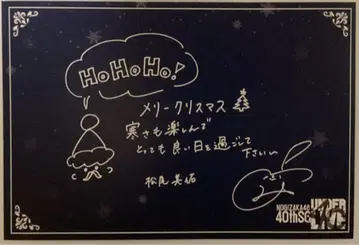 HoHoHo!
メリークリスマス
寒さも楽しんで
とっても良い日を過ごして
下さい
松尾美佑
NOGIZAKA46
40thSG
UNDER
LIVE